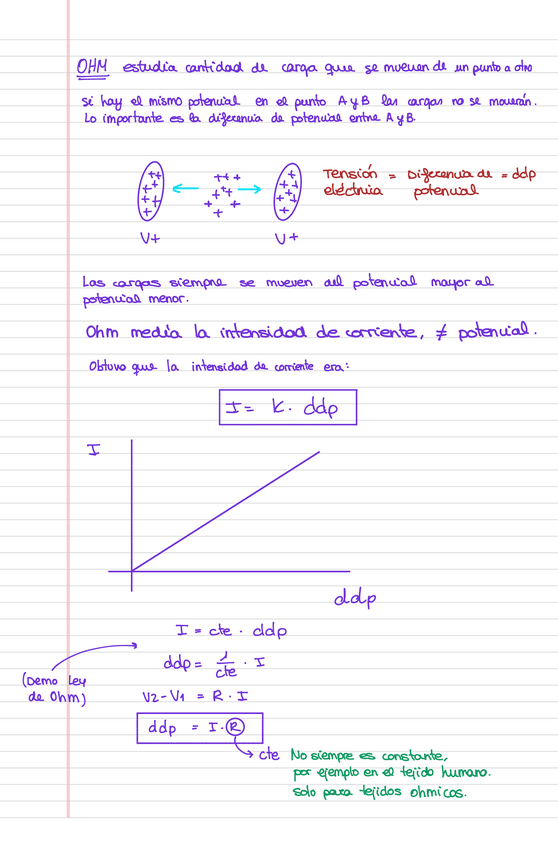 OHM estudia cantidad de carga que se mueven de un punto a otro
si hay el mismo potencial en el punto A y B las cargas no se moverán.
Lo importante es la diferencia de potencial entre A y B.
Tensión = Diferencia de = ddp
eléctrica potencial
V+ V+
Las cargas siempre se mueven del potencial mayor al
potencial menor.
Ohm media la intensidad de corriente, ≠ potencial.
Obtuvo que la intensidad de corriente era:
I = K · ddp
I
ddp
I = cte · ddp
ddp = 1/cte · I
(Demo Ley
de Ohm)
V2-V1 = R · I
ddp = I · R
cte No siempre es constante,
por ejemplo en el tejido humano.
solo para tejidos ohmicos.